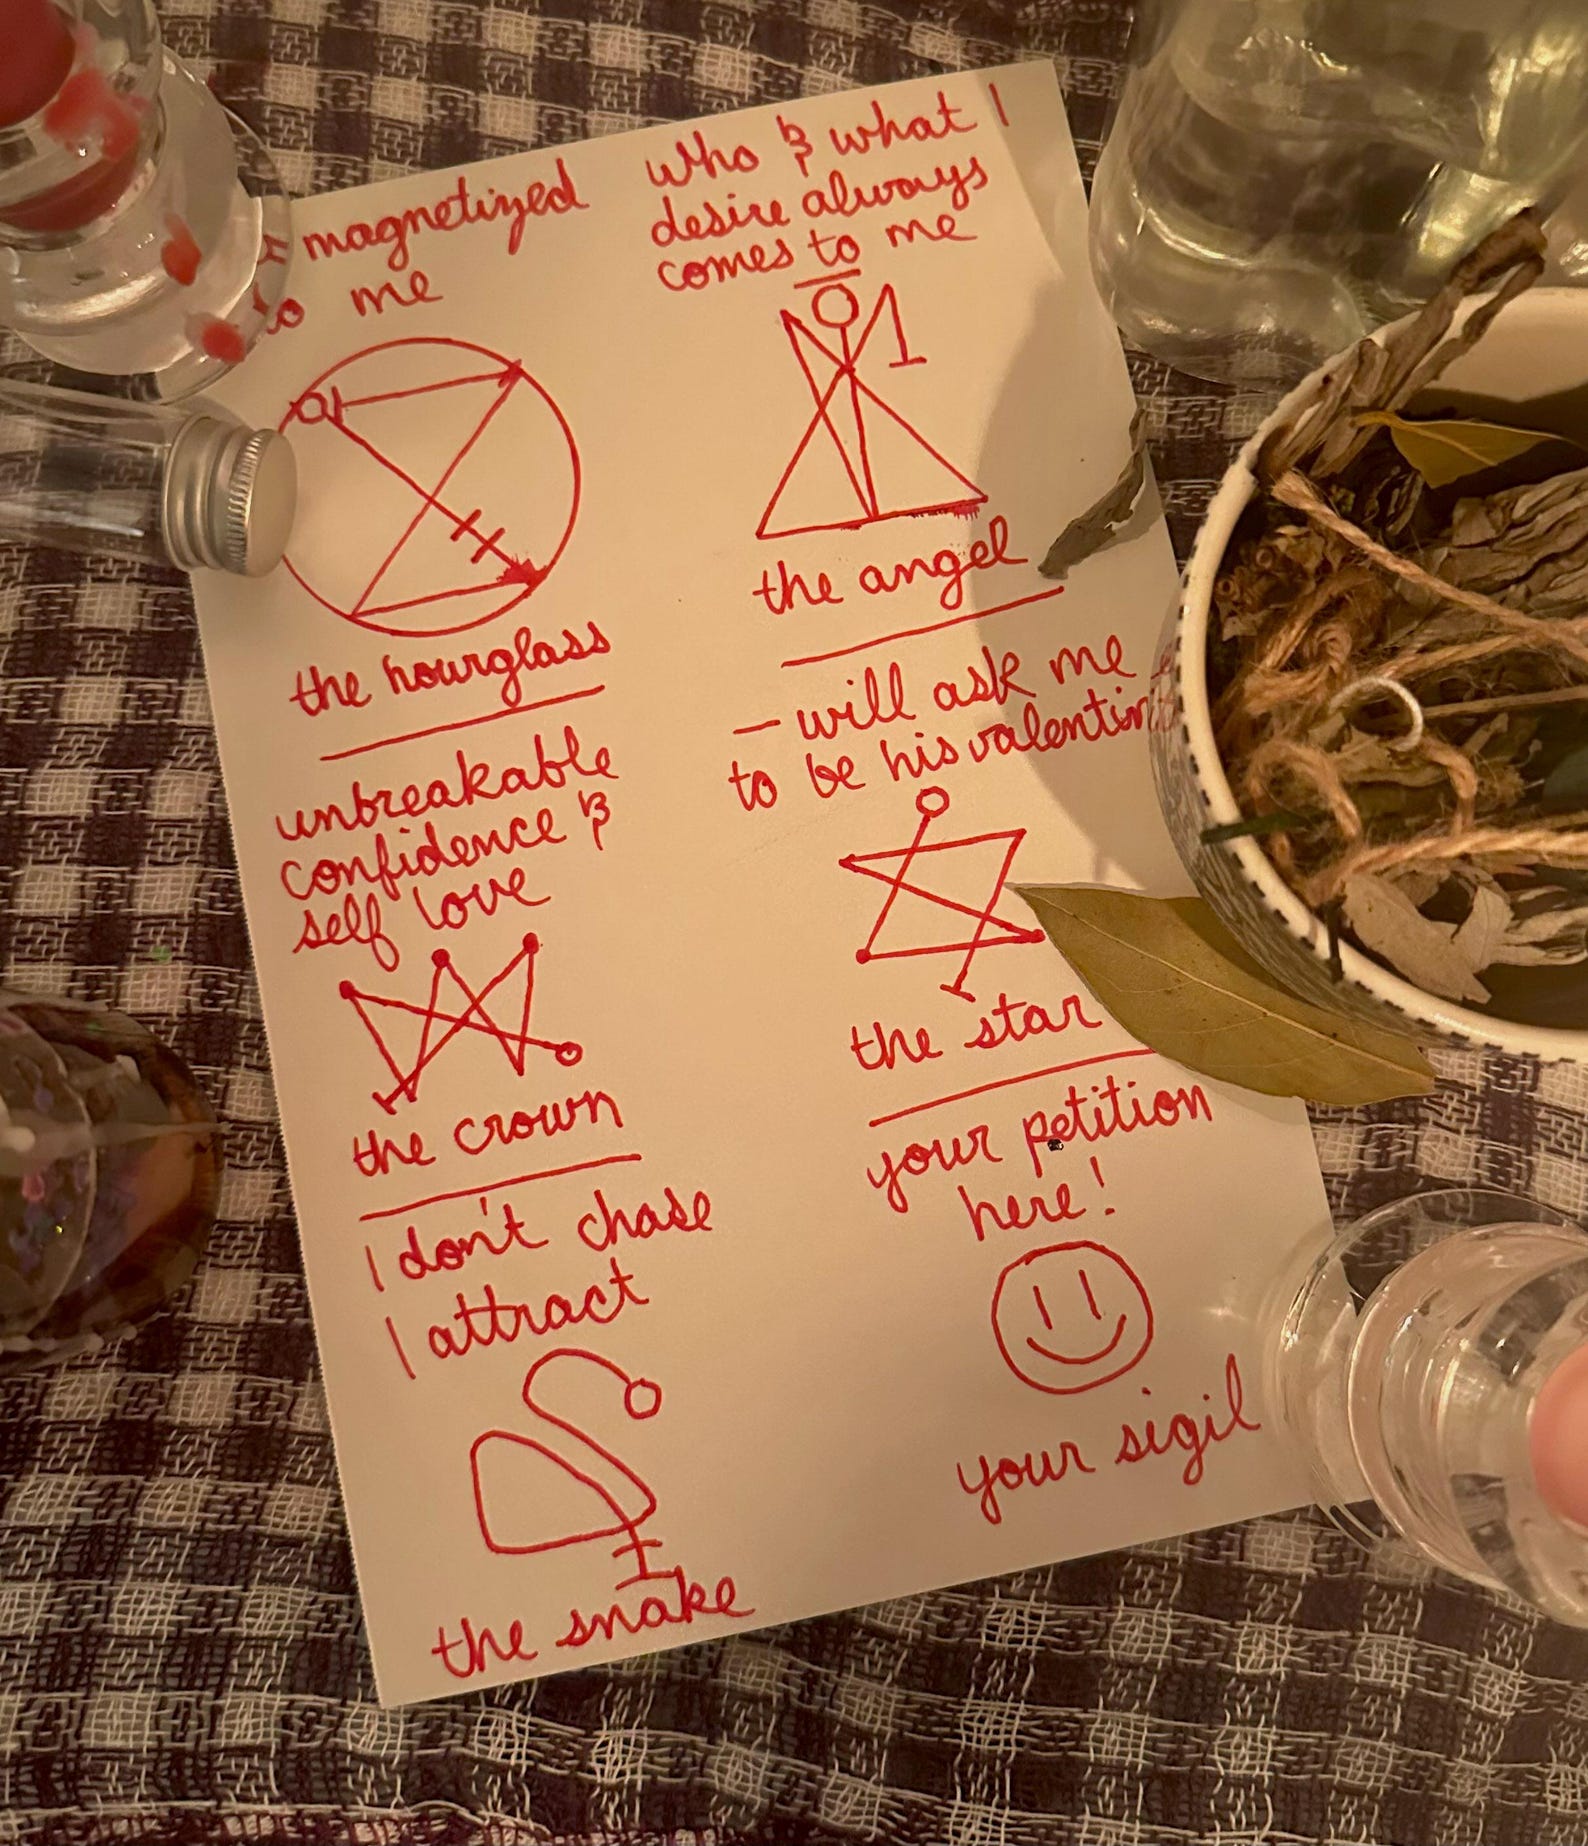 magnetized
to me
the hourglass
unbreakable
confidence &
self love
the crown
I don't chase
I attract
the snake
who & what I
desire always
comes to me
the angel
— will ask me
to be his valentin
the star
your petition
here!
your sigil